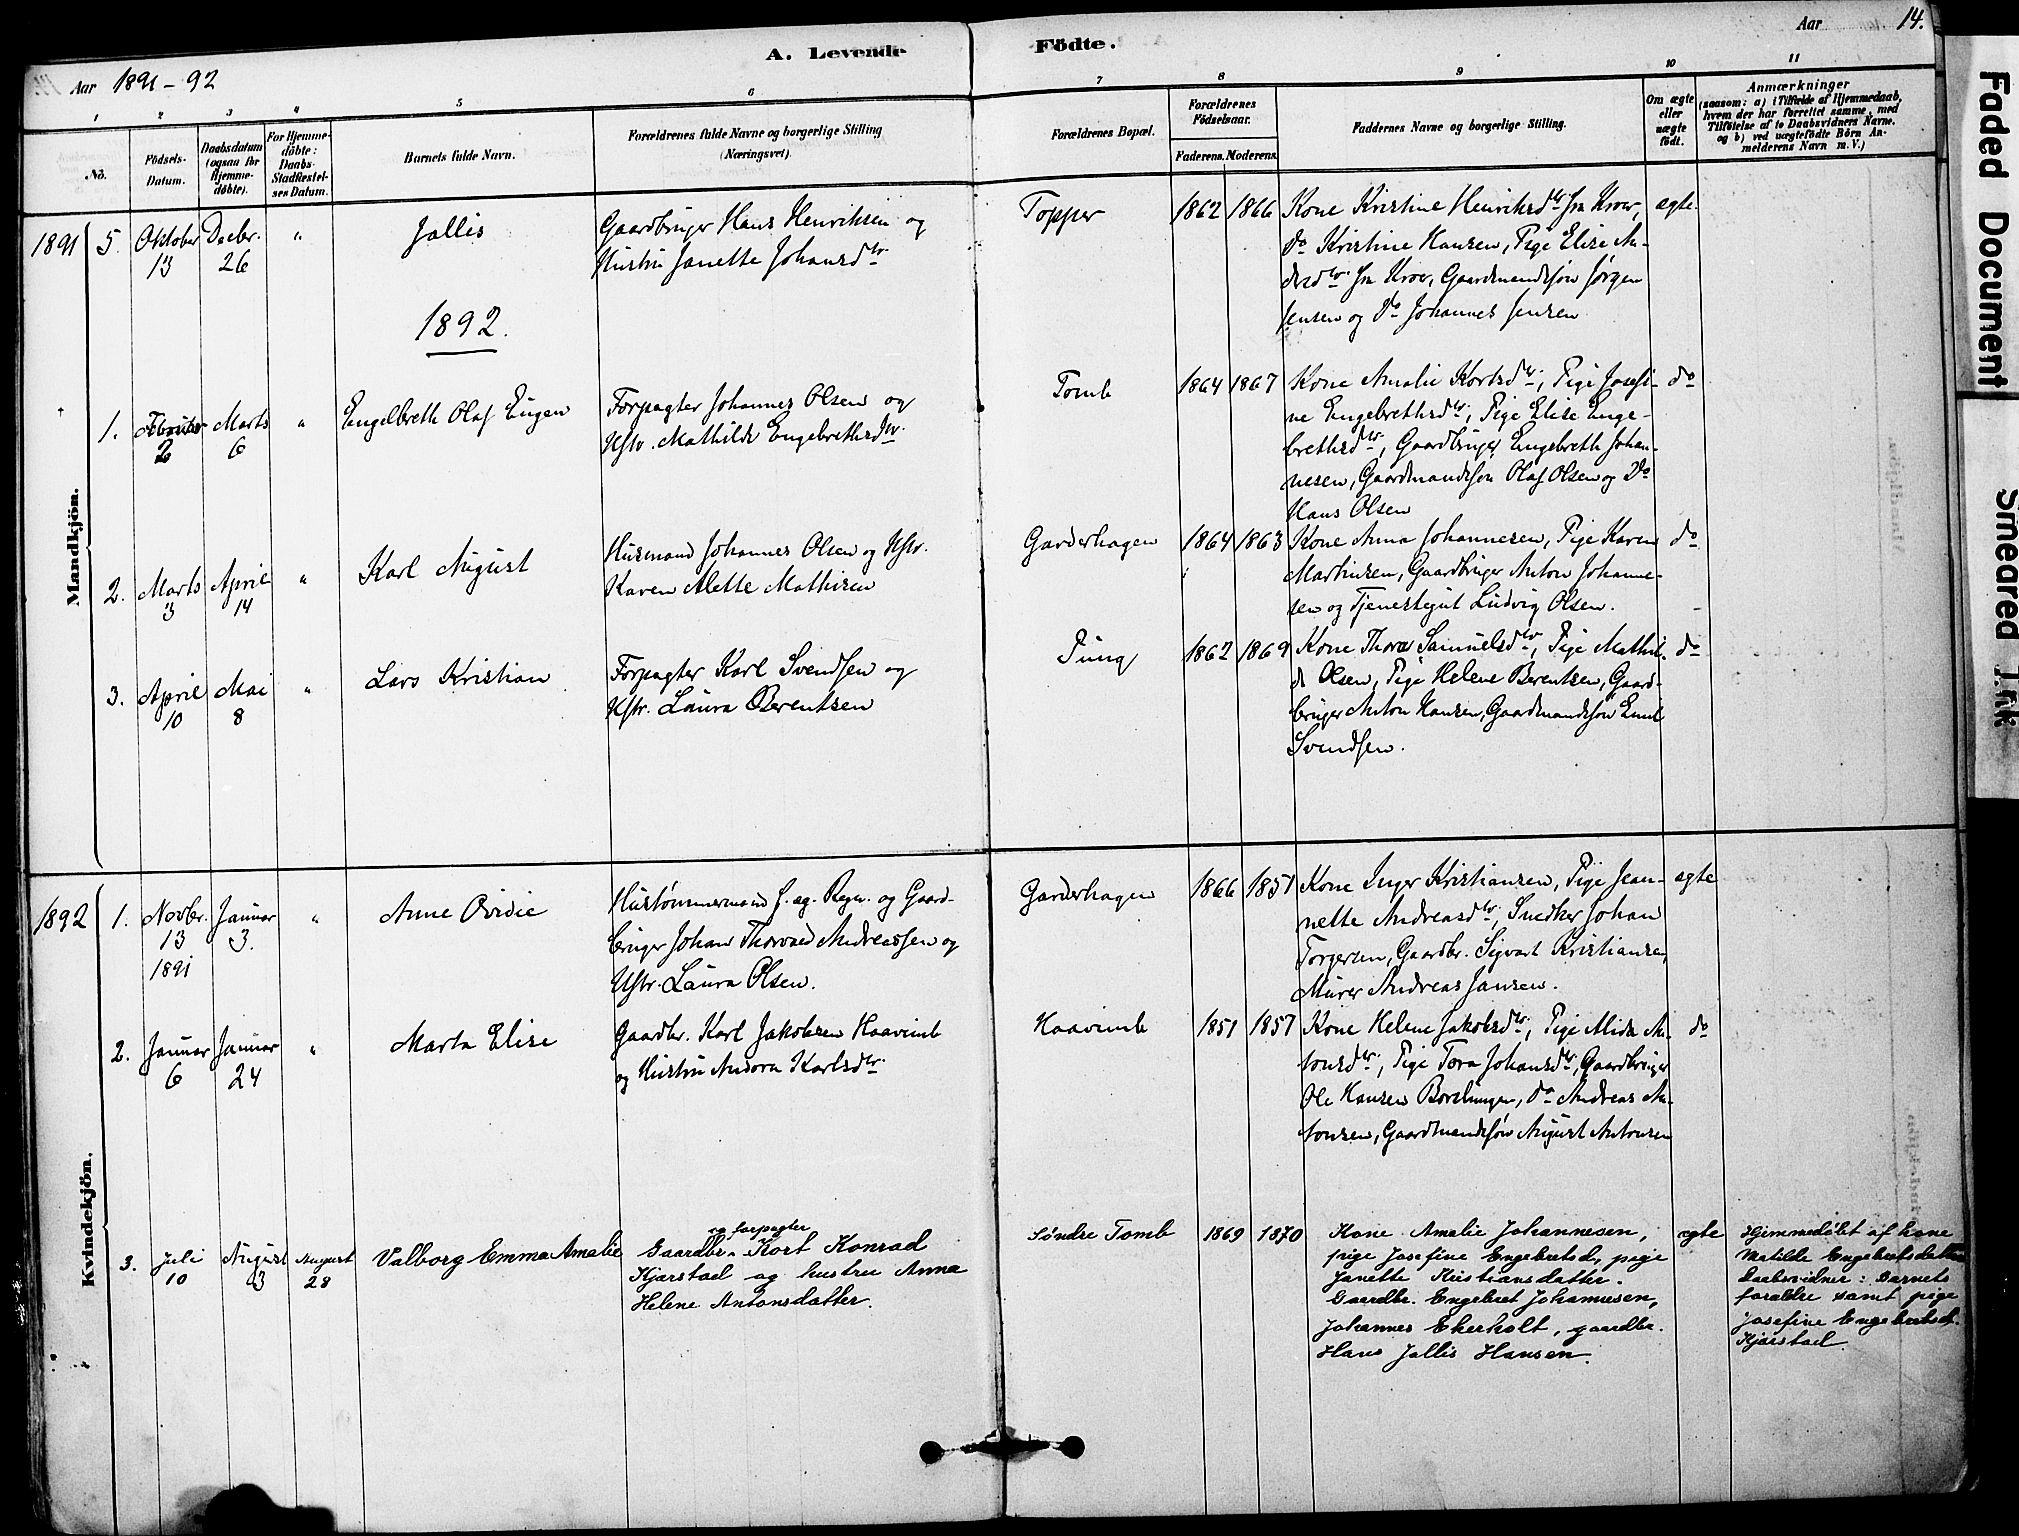 Aar 1891-92
A. Levende
Födte.
Aar
14.
1 2 3 4 5 6 7 8 9 10 11
No.
Födsels-Datum.
Daabsdatum (ogsaa for Hjemme-döbte).
For Hjemme-döbte: Daabs-Stadfæstel-ses Datum.
Barnets fulde Navn.
Forældrenes fulde Navne og borgerlige Stilling (Næringsvei).
Forældrenes Bopæl.
Forældrenes Födselsaar.
Faderens. Moderens.
Faddernes Navne og borgerlige Stilling.
Om ægte eller uægte födt.
Anmærkninger
(saasom: a) i Tilfælde af Hjemmedaab,
hvem der har forrettet samme, med
Tilföielse af to Daabsvidners Navne,
og b) ved uægtefödte Börn An-
melderens Navn m. V.)
Mandkjön.
1891 5. Oktober 13 Decbr. 26 "
Jallis
Gaardbruger Hans Henriksen og
Hustru Janette Johansdtr
Topper
1862 1866
Kone Kristine Henriksdtr fra Kroer,
do Kristine Hansen, Pige Elise An-
dersdtr fra Kroer, Gaardmandssøn Jørgen
Jensen og do Johannes Jensen
ægte.
1892.
1. Februar 2 Marts 6 "
Engelbreth Olaf Eugen
Forpagter Johannes Olsen og
Hstr. Mathilde Engebrethsdtr.
Tomb
1864 1867
Kone Amalie Kortsdtr, Pige Josefi-
ne Engebrethsdtr, Pige Elise Enge-
brethsdtr, Gaardbruger Engebreth Johan-
nesen, Gaardmandssøn Olaf Olsen og do
Hans Olsen
do
2. Marts 3 April 14 "
Karl August
Husmand Johannes Olsen og Hstr.
Karen Alette Mathisen
Garderhagen
1864 1863
Kone Anna Johannesen, Pige Karen
Martinsen, Gaardbruger Anton Johanne-
sen og Tjenestegut Ludvig Olsen.
do
3. April 10 Mai 8 "
Lars Kristian
Forpagter Karl Svendsen og
Hstr. Laura Berentsen
Pung
1862 1869
Kone Thora Samuelsdtr, Pige Mathil-
de Olsen, Pige Helene Berentsen, Gaard-
bruger Anton Hansen, Gaardmandssøn Emil
Svendsen.
do
Kvindekjön.
1892 1. Novbr. 13 1891 Januar 3. "
Anne Ovidie
Hustømmermand f. og Gaard-
bruger Johan Thorvald Andreassen og
Hstr. Laura Olsen.
Garderhagen
1866 1851
Kone Inger Kristiansen, Pige Jean-
nette Andreasdtr, Snedker Johan
Torgersen, Gaardbr. Sigvart Kristiansen,
Murer Andreas Jansen.
ægte
2. Januar 6 Januar 24 "
Marta Elise
Gaardbr. Karl Jakobsen Haavimb
og Hustru Andora Karlsdtr
Haavimb
1851 1857
Kone Helene Jakobsdtr, Pige Alida An-
tonsdtr, Pige Tora Johansdtr, Gaardbruger
Ole Hansen, do Andreas An-
tonsen, Gaardmandssøn August Antonsen
do
3. Juli 10 August 3 August 28
Valborg Emma Amalie
og forpagter
Gaardbr. Kort Konrad
Kjærstad og hustru Anna
Helene Antonsdatter.
Søndre Tomb
1869 1870
Kone Amalie Johannesen,
pige Josefine Engebretsd, pige
Janette Kristiansdatter.
Gaardbr. Engebret Johannesen,
Johannes Ekerholt, gaardbr.
Hans Jallis Hansen.
ægte
Hjemmedøbt af kone
Matilde Engebretsdatter
Daabsvidner: Barnets
forældre samt pige
Josefine Engebretsdt.
Kjærstad.
Faded Document
Smeared Ink